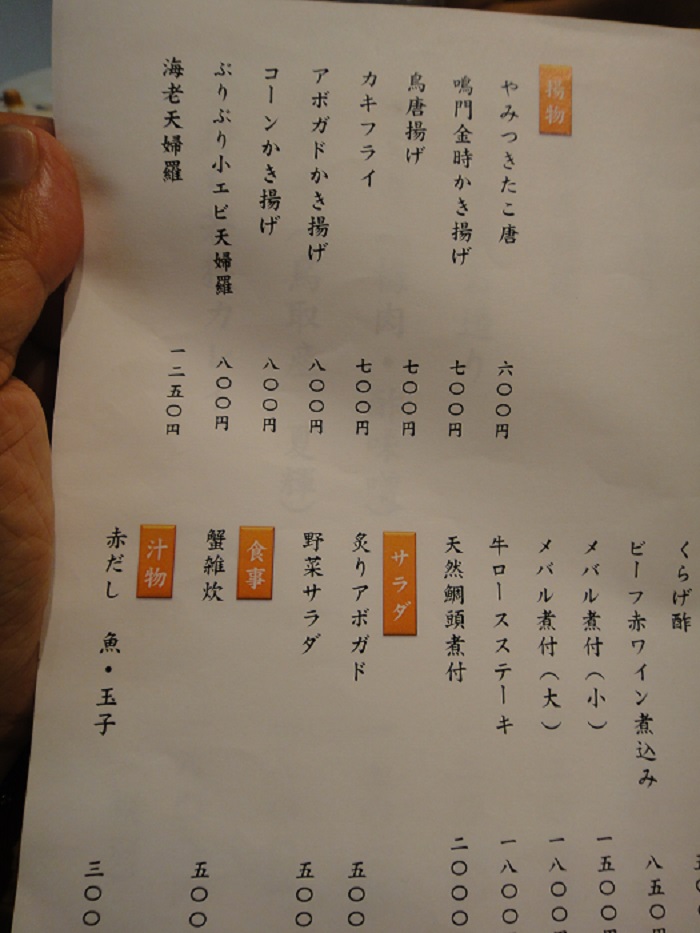 揚物
やみつきたこ唐
六〇〇円
鳴門金時かき揚げ
七〇〇円
鳥唐揚げ
七〇〇円
カキフライ
七〇〇円
アボガドかき揚げ
八〇〇円
コーンかき揚げ
八〇〇円
ぷりぷり小エビ天婦羅
八〇〇円
海老天婦羅
一二五〇円
くらげ酢
ビーフ赤ワイン煮込み
八五〇円
メバル煮付（小）
一五〇〇円
メバル煮付（大）
一八〇〇
牛ロースステーキ
一八〇〇
天然鯛頭煮付
二〇〇〇
サラダ
炙りアボガド
五〇〇
野菜サラダ
五〇〇
食事
蟹雑炊
五〇〇
汁物
赤だし 魚・玉子
三〇〇